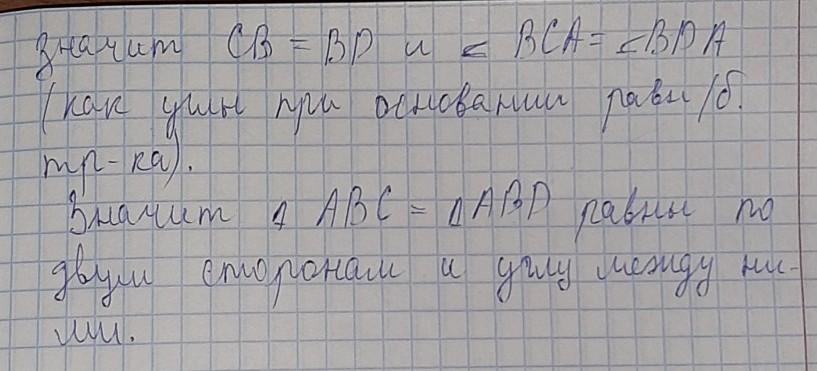 значит CB = BD и ∠ BCA = ∠BDA
(как углы при основании равн/б.
тр-ка).
Значит Δ ABC = ΔABD равны по
двум сторонам и углу между ни-
ми.